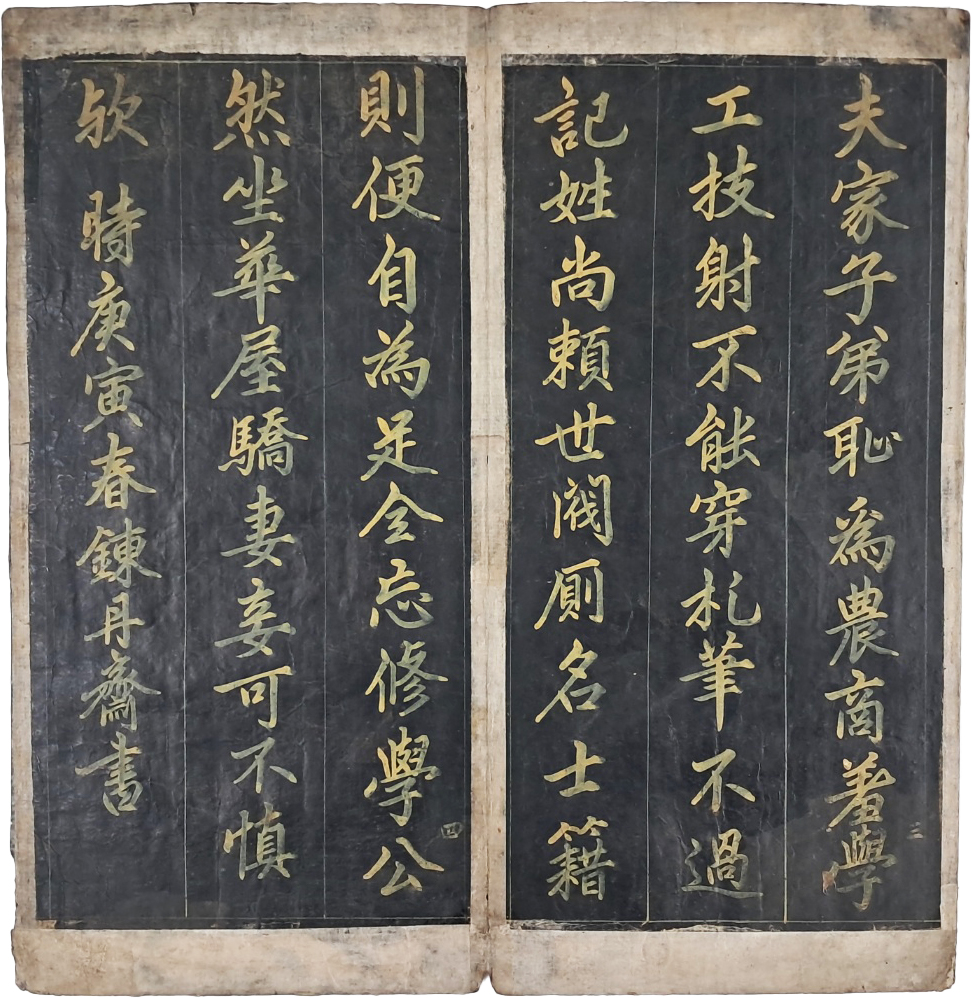 夫家子弟恥為農商羞學
三
工技射不能穿札筆不過
記姓尚賴世閥厠名士籍
則便自為足全忘修學公
四
然坐華屋驕妻妾可不慎
欤 時庚寅春錬丹齋書